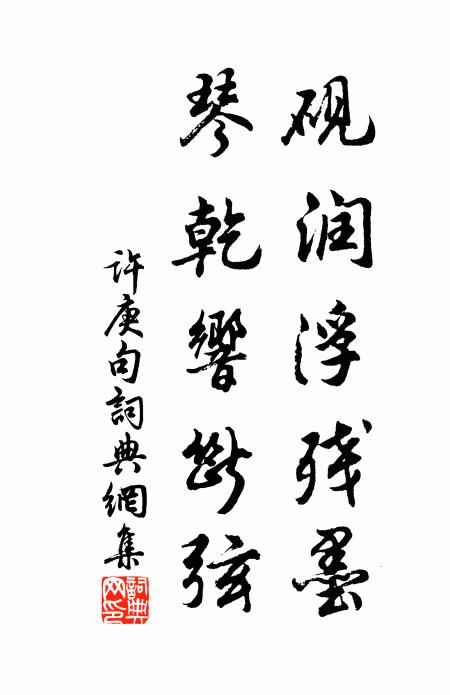 砚润浮残墨
琴乾響断弦
許庚句詞典網集